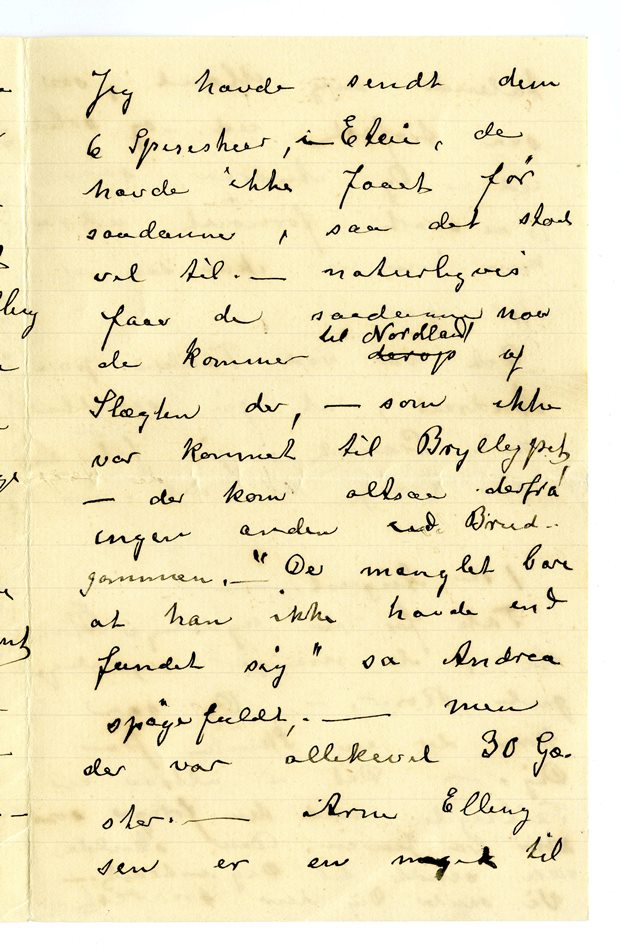 Jeg havde sendt dem
6 Spiseskeer, i Etui, de
havde ikke faaet før
saadanne, saa det stod
vel til. — naturligvis
faar de saadanne naar
de kommer derop til Nordland af
Slægten der, — som ikke
var kommet til Bryllupet,
— der kom altsaa derfra
ingen anden end Brud-
gommen. — "Der manglet bare
at han ikke havde end
fundet sig" sa Andrea
spøgefuldt, — men
der var allikevel 30 Gæ-
ster. — Arne Elling
sen er en meget til